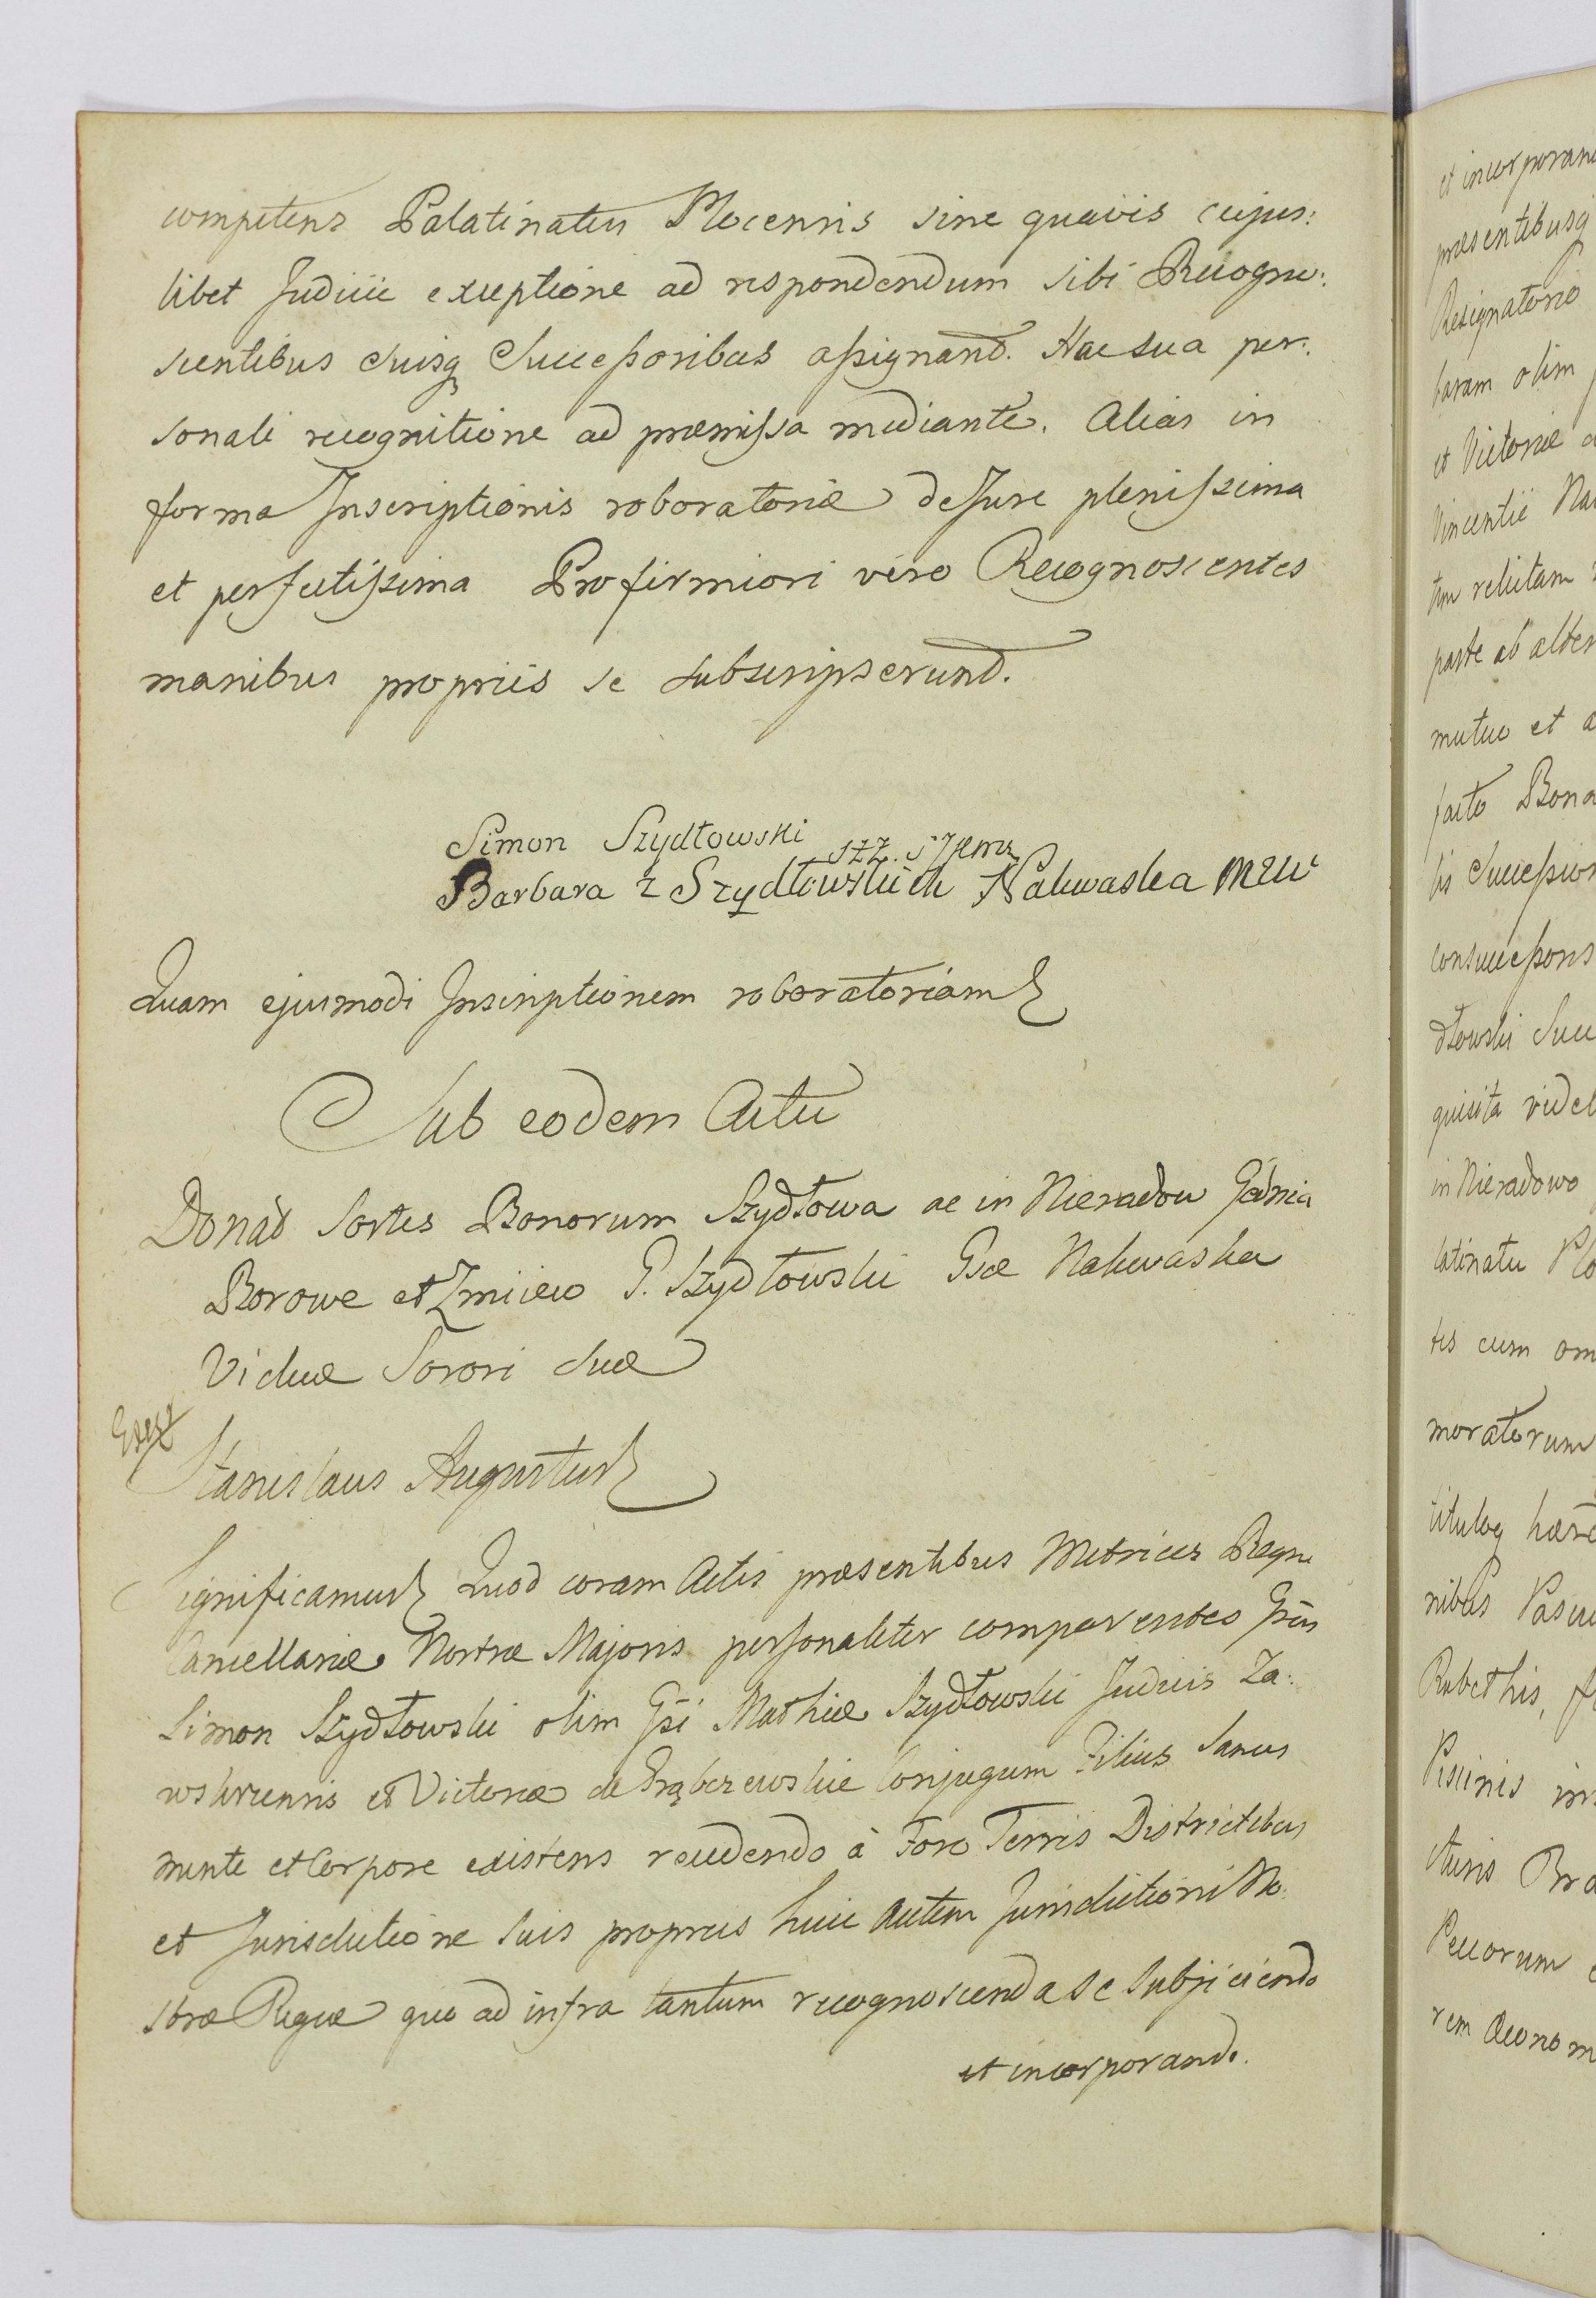 competens Palatinatus Plocensis sine quavis cujus:
libet Judicii exceptione ad respondendum sibi Recogno:
scentibus Suisq Succeſsoribus aſsignand. Hac sua per:
sonali recognitione ad præmiſsa mediante. Alias in
forma Inscriptionis roboratoriæ de Jure pleniſsima
et perfectiſsima Pro firmiori vero Recognoscentes
manibus propriis se subscripserund.
Simon Szydłowski
Barbara z Szydłowskich Nakwaska mzw
Quam ejusmodi Inscriptionem roboratoriam
Sub eodem Actu
Donaõ Sortes Bonorum Szydłowa ac in Nieradow
Borowe et Zmiiewo G. Szydłowski Gsæ Nakwaska
Viduæ Sorori Suæ
Stanislaus Augustus
Significamus Quod coram Actis præsentibus Metrices Regni
Cancellariæ Nostræ Majoris personaliter comparentes Gsus
Simon Szydłowski olim Gsi Mathiæ Szydłowski Judicis Za:
wskrzensis et Victoriæ de Grąbczewskie Conjugum Filius Sanus
mente et Corpore existens recedendo à Foro Terris Districtibus
et Jurisdictione Suis propriis huic autem Jurisdictioni No:
stræ Regiæ quo ad infra tantum recognoscenda se subjiciendo
et incorporando.
et incorporan
præsentibusq
Resignatorio
baram olim
et Victoriæ
Vincentii Na
tem relictam
parte ab alter
mutuo et a
facto Bona
lis Succeſsion
consucceſsoris
dłowski Succ
quisita videl
in Nieradowo
latinatu Plo
tis cum om
moratorum
tituloq hære
nibus Pascu
Rubethis, f
Piscinis in
cturis Bra
Pecorum
rem Œconom